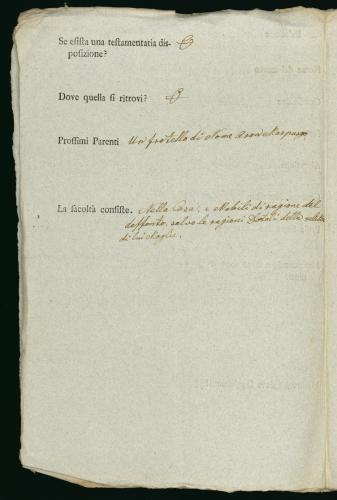 Se esista una testamentaria dis-
posizione?
Dove quella si ritrovi?
Prossimi Parenti Un fratello di Nome
La facoltà consiste. Nella Casa, e Mobili di ragione del
deffonto, salvo le ragioni Dotali della
di lui Moglie.